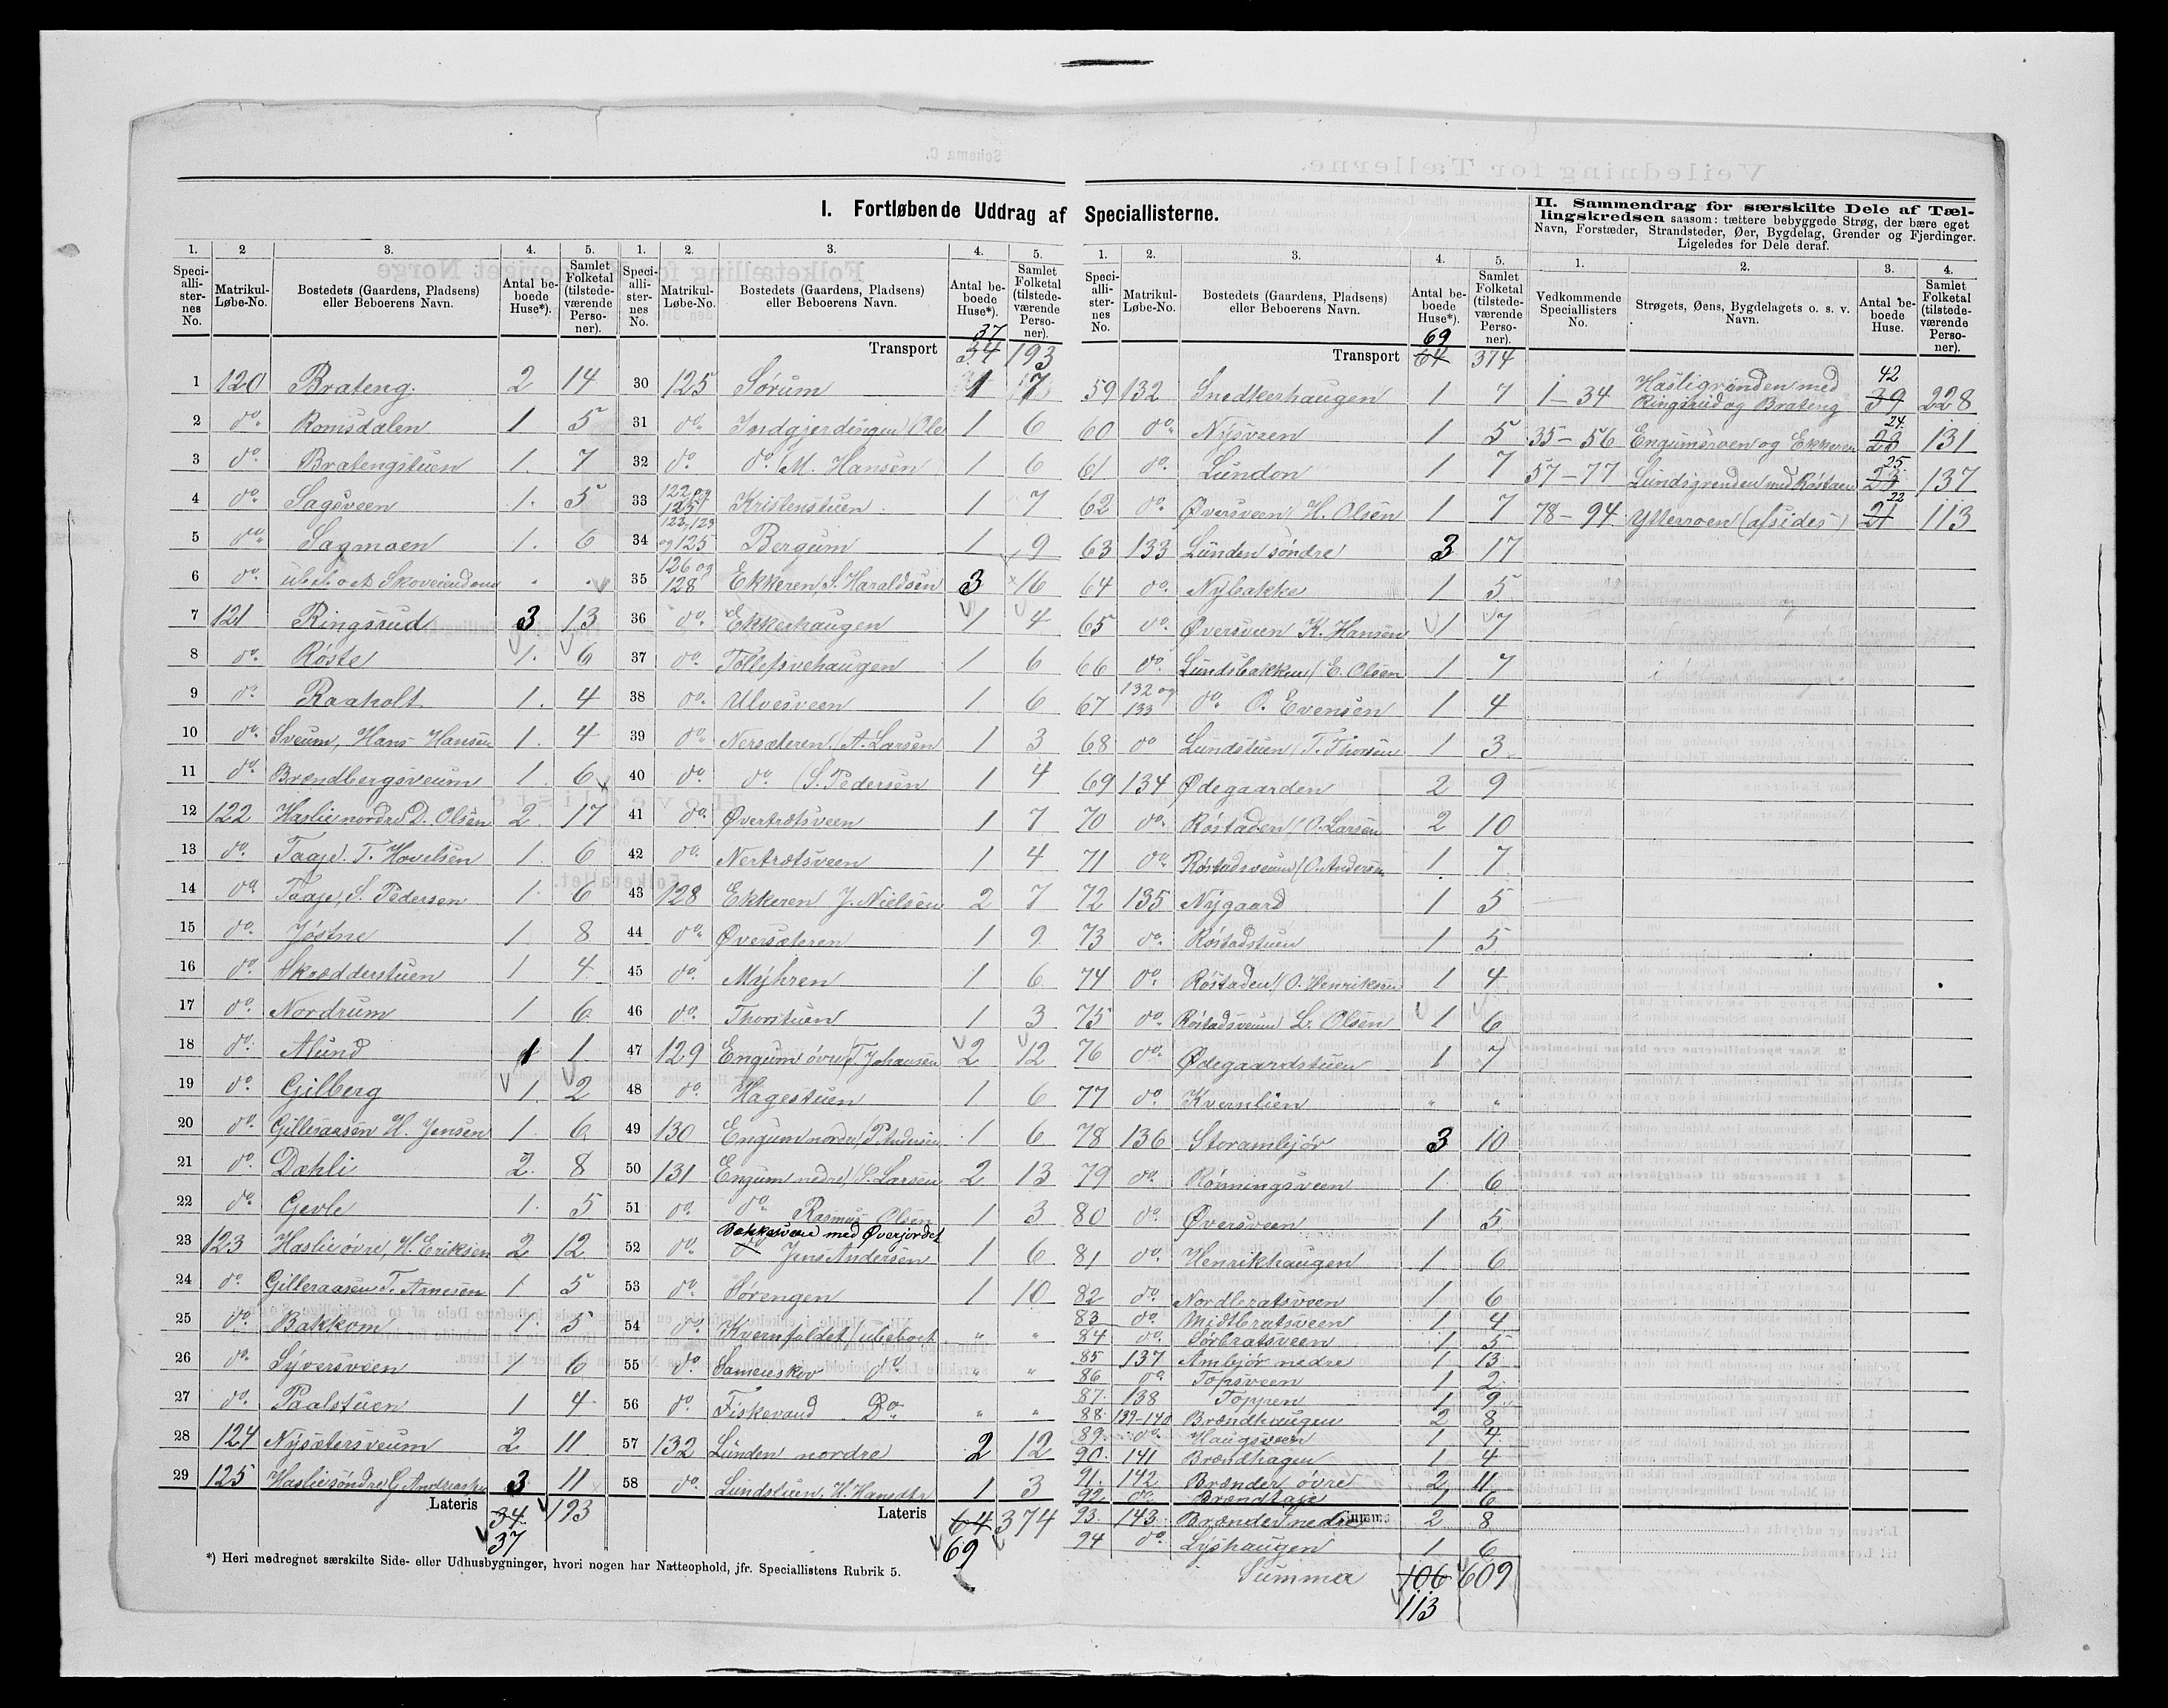 I. Fortløbende Uddrag af Speciallisterne.
II. Sammendrag for særskilte Dele af Tællingskredsen saasom: tættere bebyggede Strøg, der bære eget Navn, Forstæder, Strandsteder, Øer, Bygdelag, Grender og Fjerdinger. Ligeledes for Dele deraf.
1. 2 3. 4. 5.
Speciallisternes No. Matrikul-Løbe-No. Bostedets (Gaardens, Pladsens) eller Beboerens Navn. Antal beboede Huse*). Samlet Folketal (tilstedeværende Personer).
1 120 Brateng 2 14
2 do. Romsdalen 1 5
3 do. Bratengstuen 1. 7
4 do. Sagsveen 1. 5
5 do. Sagmoen 1. 6
6 do. ubeboet Skoveiendom " "
7 121 Ringsrud 3 13
8 do. Røste 1. 6
9 do. Raaholt 1. 4
10 do. Sveum, Hans Hansen 1. 4
11 do. Brændbergsveum 1. 6
12 122 Haslie nordre D. Olsen 2 17
13 do. Taaje. T. Hovelsen 1. 6
14 do. Taaje, S. Pedersen 1. 6
15 do. Jøstne 1. 8
16 do. Skrædderstuen 1 4
17 do. Nordrum 1 6
18 do. Alund 1 1
19 do. Gilberg 1. 2
20 do. Gilleraasen H. Jensen 1. 6
21 do. Dæhli 2. 8
22 do. Gevle 1. 5
23 123 Haslie øvre, H. Eriksen 2 12
24 do. Gilleraasen T. Arnesen 1 5
25 do. Bakkom 1. 5
26 do. Syversveen 1 6
27 do. Paalstuen 1 4
28 124 Nysætersveum 2 11
29 125 Haslie søndre G. 3 11
Lateris 34 193
37
1. 2. 3. 4. 5.
Speciallisternes No. Matrikul-Løbe-No. Bostedets (Gaardens, Pladsens) eller Beboerens Navn. Antal beboede Huse*). Samlet Folketal (tilstedeværende Personer).
37
Transport 34 193
30 125 Sørum 1 7
31 do. Indgjerdingen (Ole 1 6
32 do. do. M. Hansen 1 6
33 122 og 125 Kristenstuen 1 7
34 122, 123 og 125 Bergum 1 9
35 126 og 128 Ekkeren, S. Haraldsen 3 16
36 do. Ekkerhaugen 1 4
37 do. Tollefsvehaugen 1 6
38 do. Ulvesveen 1 6
39 do. Nersæteren (A. Larsen 1 3
40 do. do. (S. Pedersen 1 4
41 do. Øvertrotsveen 1 7
42 do. Nertrotsveen 1 4
43 128 Ekkeren J. Nielsen 2 7
44 do. Øversæteren 1 9
45 do. Myhren 1 6
46 do. Thorstuen 1 3
47 129 Engum øvre (T. Johansen 2 12
48 do. Hagestuen 1. 6
49 130 Engum nordre 1 6
50 131 Engum nedre 2 13
51 do. do. Rasmus Olsen 1 3
Bakkesveen med Øverjordet
52 do. Jens Andersen 1 6
53 do. Sørengen 1 10
54 do. Kvernfaldet (ubeboet " "
55 do. Sameieskov do. " "
56 do. Fiskevand Do. " "
57 132 Lunden nordre 2 12
58 do. Lundstuen, H. 1 3
Lateris 64 374
69
*) Heri medregnet særskilte Side- eller Udhusbygninger, hvori nogen har Natteophold, jfr. Speciallistens Rubrik 5.
1. 2. 3. 4. 5.
Speciallisternes No. Matrikul-Løbe-No. Bostedets (Gaardens, Pladsens) eller Beboerens Navn. Antal beboede Huse*). Samlet Folketal (tilstedeværende Personer).
69
Transport 64 374
59 132 Snedkerhaugen 1 7
60 do. Nysveen 1 5
61 do. Lundon 1 7
62 do. Øversveen (H. Olsen 1 7
63 133 Lunden søndre 3 17
64 do. Nybakke 1 5
65 do. Øversveen K. Hansen 1 7
66 do. Lundsbakken (E. Olsen 1 7
67 132 og 133 do. O. Evensen 1 4
68 do Lundstuen (T. Thorsen 1 3
69 134 Ødegaarden 2 9
70 do. Røstaden (O. Larsen 2 10
71 do. Røstadsveum (O. Andersen 1. 7
72 135 Nygaard 1 5
73 do. Røstadstuen 1 5
74 do. Røstaden (O. Henriksen 1 4
75 do. Røstadsveum L. Olsen 1 6
76 do. Ødegaardstuen 1 7
77 do. Kvernlien " "
78 136 Storambjør 3 10
79 do. Rønningsveen 1. 6
80 do. Øversveen 1 5
81 do. Henrikhaugen 1 6
82 do. Nordbratsveen 1 6
83 do. Midtbratsveen 1 4
84 do. Sørbratsveen 1 5
85 137 Ambjør nedre 1 13
86 do. Topsveen 1 2
87. 138 Toppen 1 9
88. 139-140 Brændhaugen 2 8
89. do. Haugsveen 1 4
90. 141 Brændhagen 1 4
91. 142 Brænden øvre 2 11
92 do. Brændtaje 1 6
93. 143 Brænden nedre Summa 2 8
94 do. Lyshaugen 1 6
Summa 106 609
113
1. 2. 3. 4.
Vedkommende Speciallisters No. Strøgets, Øens, Bygdelagets o. s. v. Navn. Antal beboede Huse. Samlet Folketal (tilstedeværende Personer).
1-34 Hasligrenden med Ringsrud og Brateng 42 39 228
35-56 Engumsroen og Ekkeren 24. 22 131
57-77 Lundsgrenden med Røstaen 25. 23 137
78-94 Ytterroen (afsides) 22 21 113